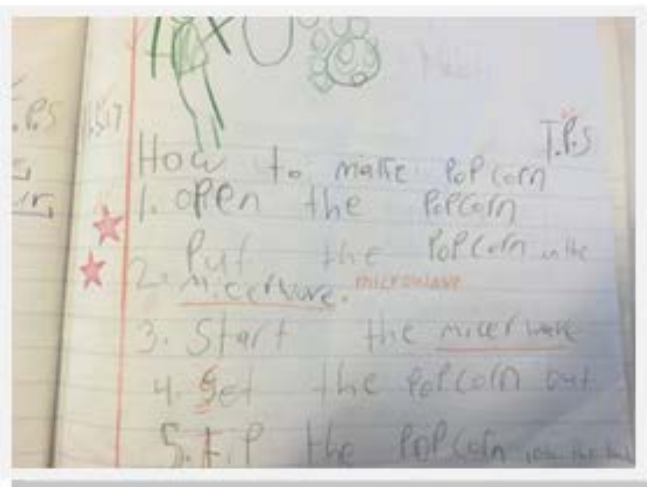 T.P.S
How to make PoPcorn
1. open the PoPcorn
Put the PoPcorn in the
2. micerwave. microwave
3. Start the micerwave
4. get the PoPcorn out
5. the PoPcorn into the